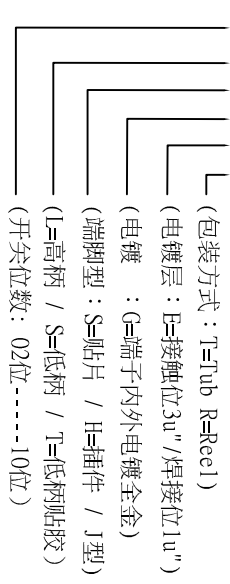 (包装方式:T=Tub R=Reel)
(电镀层:E=接触位3u"/焊接位1u")
(电镀 :G=端子内外电镀全金)
(端脚型:S=贴片 / H=插件 / J型)
(L=高柄 / S=低柄 / T=低柄贴胶)
(开关位数: 02位-----10位)